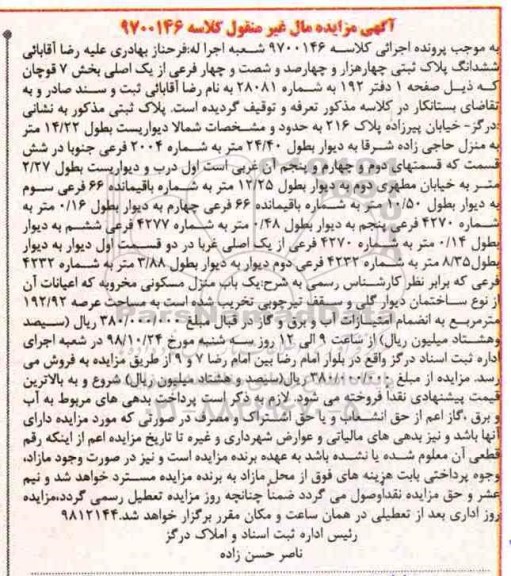 آگهی مزایده مال غیر منقول کلاسه ۹۷۰۰۱۴۶
به موجب پرونده اجرائی کلاسه ۹۷۰۰۱۴۶ شعبه اجرا له:فرحناز بهادری علیه رضا آقابائی
ششدانگ پلاک ثبتی چهارهزار و چهارصد و شصت و چهار فرعی از یک اصلی بخش ۷ قوچان
که ذیل صفحه ۱ دفتر ۱۹۲ به شماره ۲۸۰۸۱ به نام رضا آقابائی ثبت و سند صادر و به
تقاضای بستانکار در کلاسه مذکور تعرفه و توقیف گردیده است. پلاک ثبتی مذکور به نشانی
:درگز- خیابان پیرزاده پلاک ۲۱۶ به حدود و مشخصات شمالا دیواریست بطول ۱۴/۲۲ متر
به منزل حاجی زاده شرقا به دیوار بطول ۲۴/۴۰ متر به شماره ۲۰۰۴ فرعی جنوبا در شش
قسمت که قسمتهای دوم و چهارم و پنجم آن غربی است اول درب و دیواریست بطول ۲/۲۷
متر به خیابان مطهری دوم به دیوار بطول ۱۲/۲۵ متر به شماره باقیمانده ۶۶ فرعی سوم
به دیوار بطول ۱۰/۵۰ متر به شماره باقیمانده ۶۶ فرعی چهارم به دیوار بطول ۰/۱۶ متر به
شماره ۴۲۷۰ فرعی پنجم به دیوار بطول ۰/۴۸ متر به شماره ۴۲۷۷ فرعی ششم به دیوار
بطول ۰/۱۴ متر به شماره ۴۲۷۰ فرعی از یک اصلی غربا در دو قسمت اول دیوار به دیوار
بطول۸/۳۵ متر به شماره ۴۲۳۲ فرعی دوم دیوار به دیوار بطول ۳/۸۸ متر به شماره ۴۲۳۲
فرعی که برابر نظر کارشناس رسمی به شرح:یک باب منزل مسکونی مخروبه که اعیانات آن
از نوع ساختمان دیوار گلی و سقف تیرچوبی تخریب شده است به مساحت عرصه ۱۹۲/۹۲
مترمربع به انضمام امتیازات آب و برق و گاز در قبال مبلغ ۳۸۰/۰۰۰/۰۰۰ ریال (سیصد
وهشتاد میلیون ریال) از ساعت ۹ الی ۱۲ روز سه شنبه مورخ ۹۸/۱۰/۲۴ در شعبه اجرای
اداره ثبت اسناد درگز واقع در بلوار امام رضا بین امام رضا ۷ و ۹ از طریق مزایده به فروش می
رسد. مزایده از مبلغ ۳۸۰/۰۰۰/۰۰۰ ریال(سیصد و هشتاد میلیون ریال) شروع و به بالاترین
قیمت پیشنهادی نقدا فروخته می شود. لازم به ذکر است پرداخت بدهی های مربوط به آب
و برق ،گاز اعم از حق انشعاب و یا حق اشتراک و مصرف در صورتی که مورد مزایده دارای
آنها باشد و نیز بدهی های مالیاتی و عوارض شهرداری و غیره تا تاریخ مزایده اعم از اینکه رقم
قطعی آن معلوم شده یا نشده باشد به عهده برنده مزایده است و نیز در صورت وجود مازاد،
وجوه پرداختی بابت هزینه های فوق از محل مازاد به برنده مزایده مسترد خواهد شد و نیم
عشر و حق مزایده نقداوصول می گردد ضمناً چنانچه روز مزایده تعطیل رسمی گردد،مزایده
روز اداری بعد از تعطیلی در همان ساعت و مکان مقرر برگزار خواهد شد.۹۸۱۲۱۴۴
رئیس اداره ثبت اسناد و املاک درگز
ناصر حسن زاده